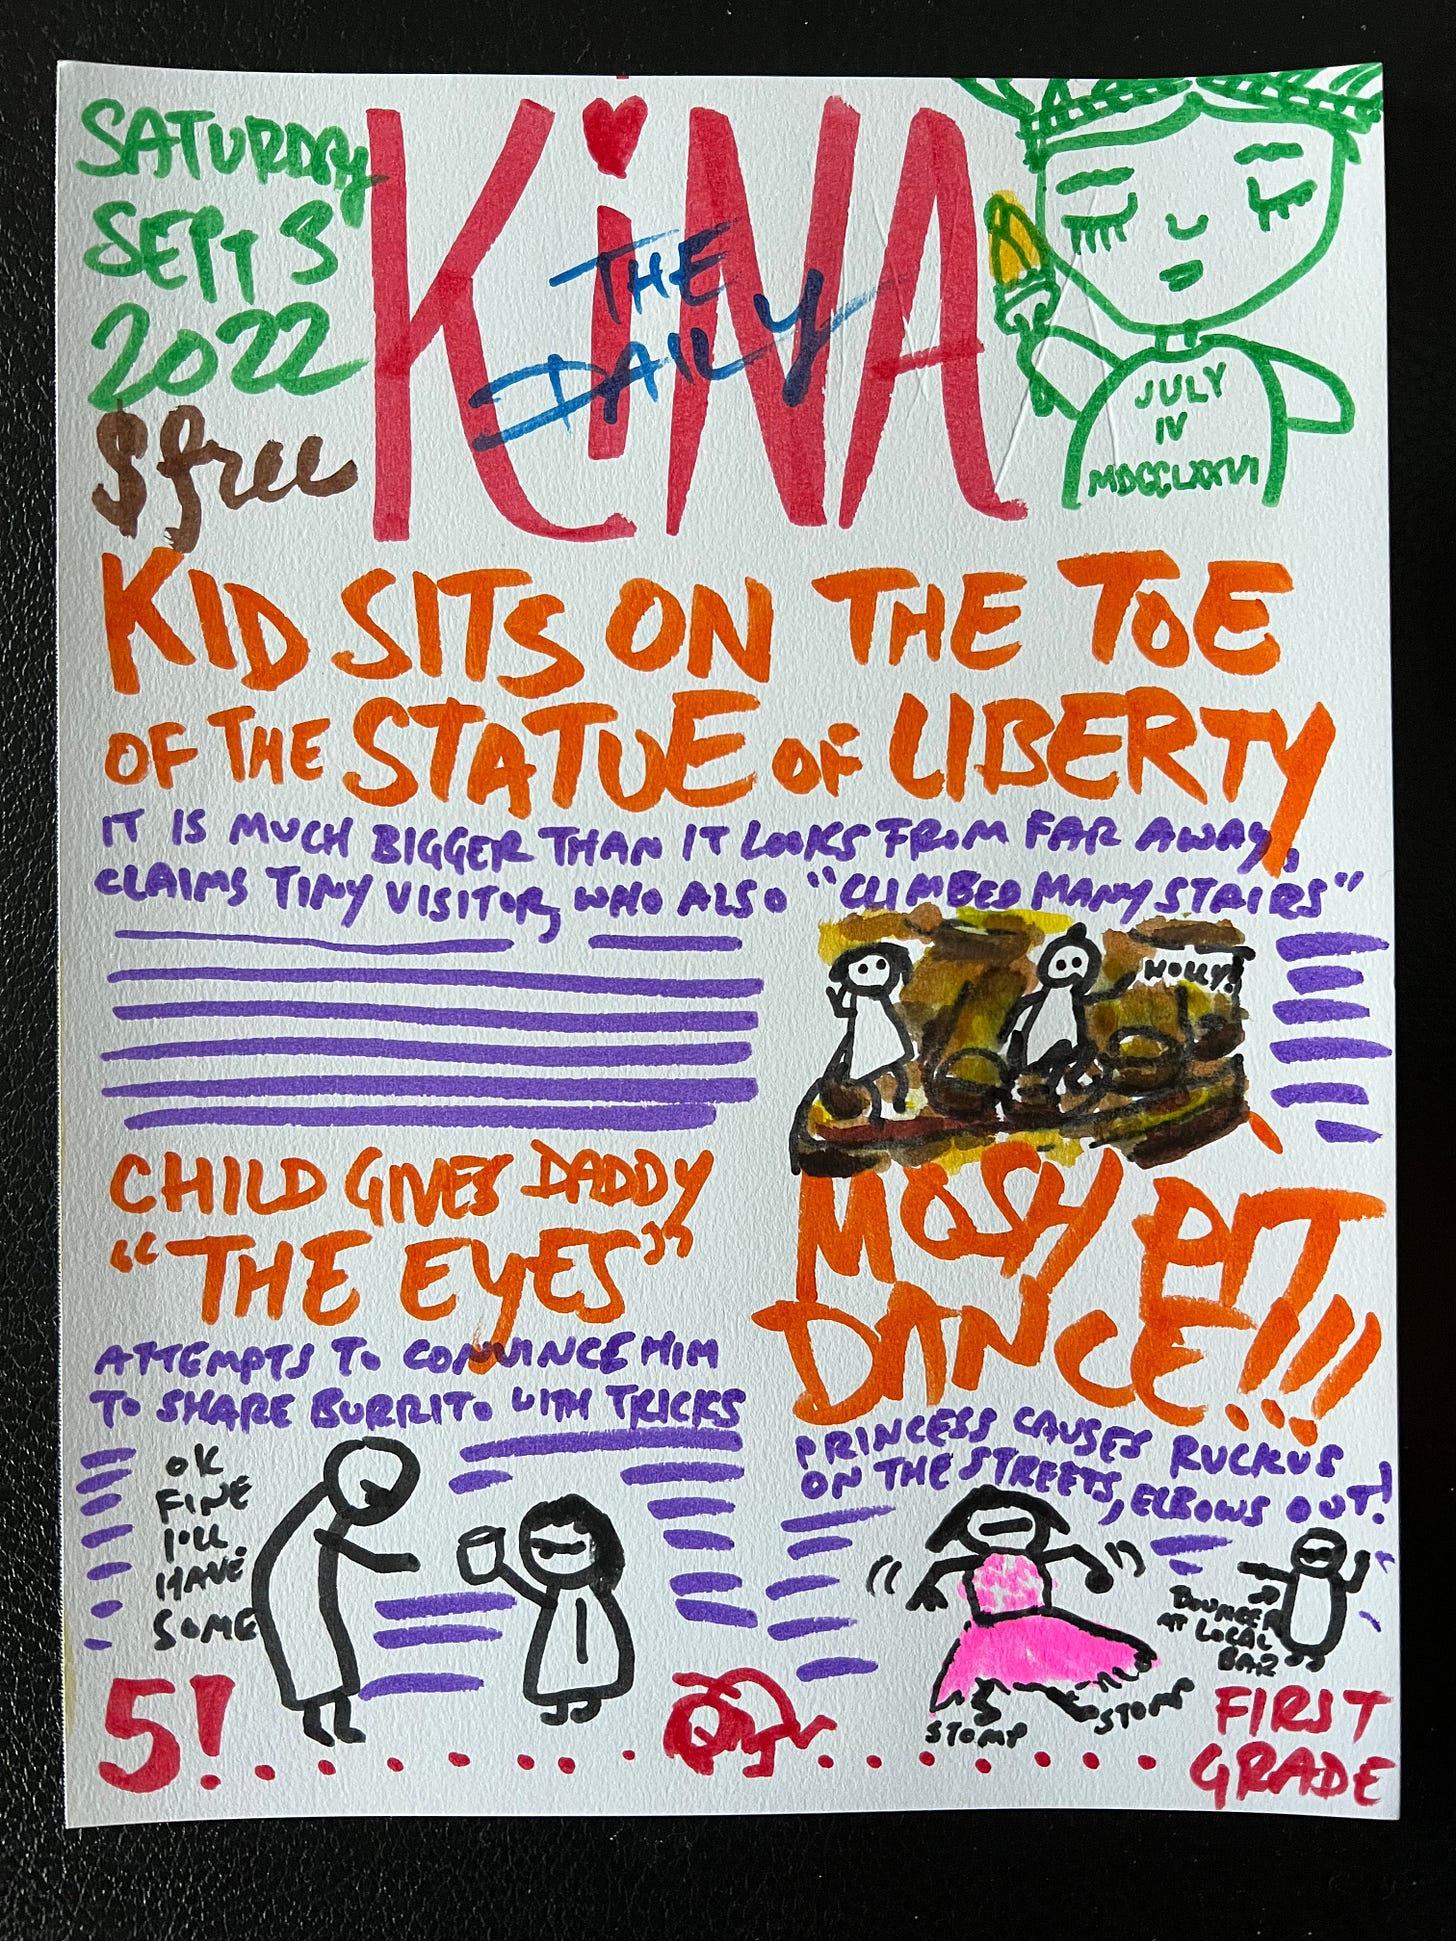 SATURDAY
SEPT 3
2022
$free
THE
DAILY
KiNA
JULY
IV
MDCCLXXVI
KID SITS ON THE TOE
OF THE STATUE OF LIBERTY
IT IS MUCH BIGGER THAN IT LOOKS FROM FAR AWAY,
CLAIMS TINY VISITOR, WHO ALSO "CLIMBED MANY STAIRS"
HOLLY!
CHILD GIVES DADDY
"THE EYES"
ATTEMPTS TO CONVINCE HIM
TO SHARE BURRITO WITH TRICKS
OK
FINE
I'LL
HAVE
SOME
MOSH PIT
DANCE!!!
PRINCESS CAUSES RUCKUS
ON THE STREETS, ELBOWS OUT!
BOUNCER
AT LOCAL
BAR
STOMP
STOMP
5!
FIRST
GRADE